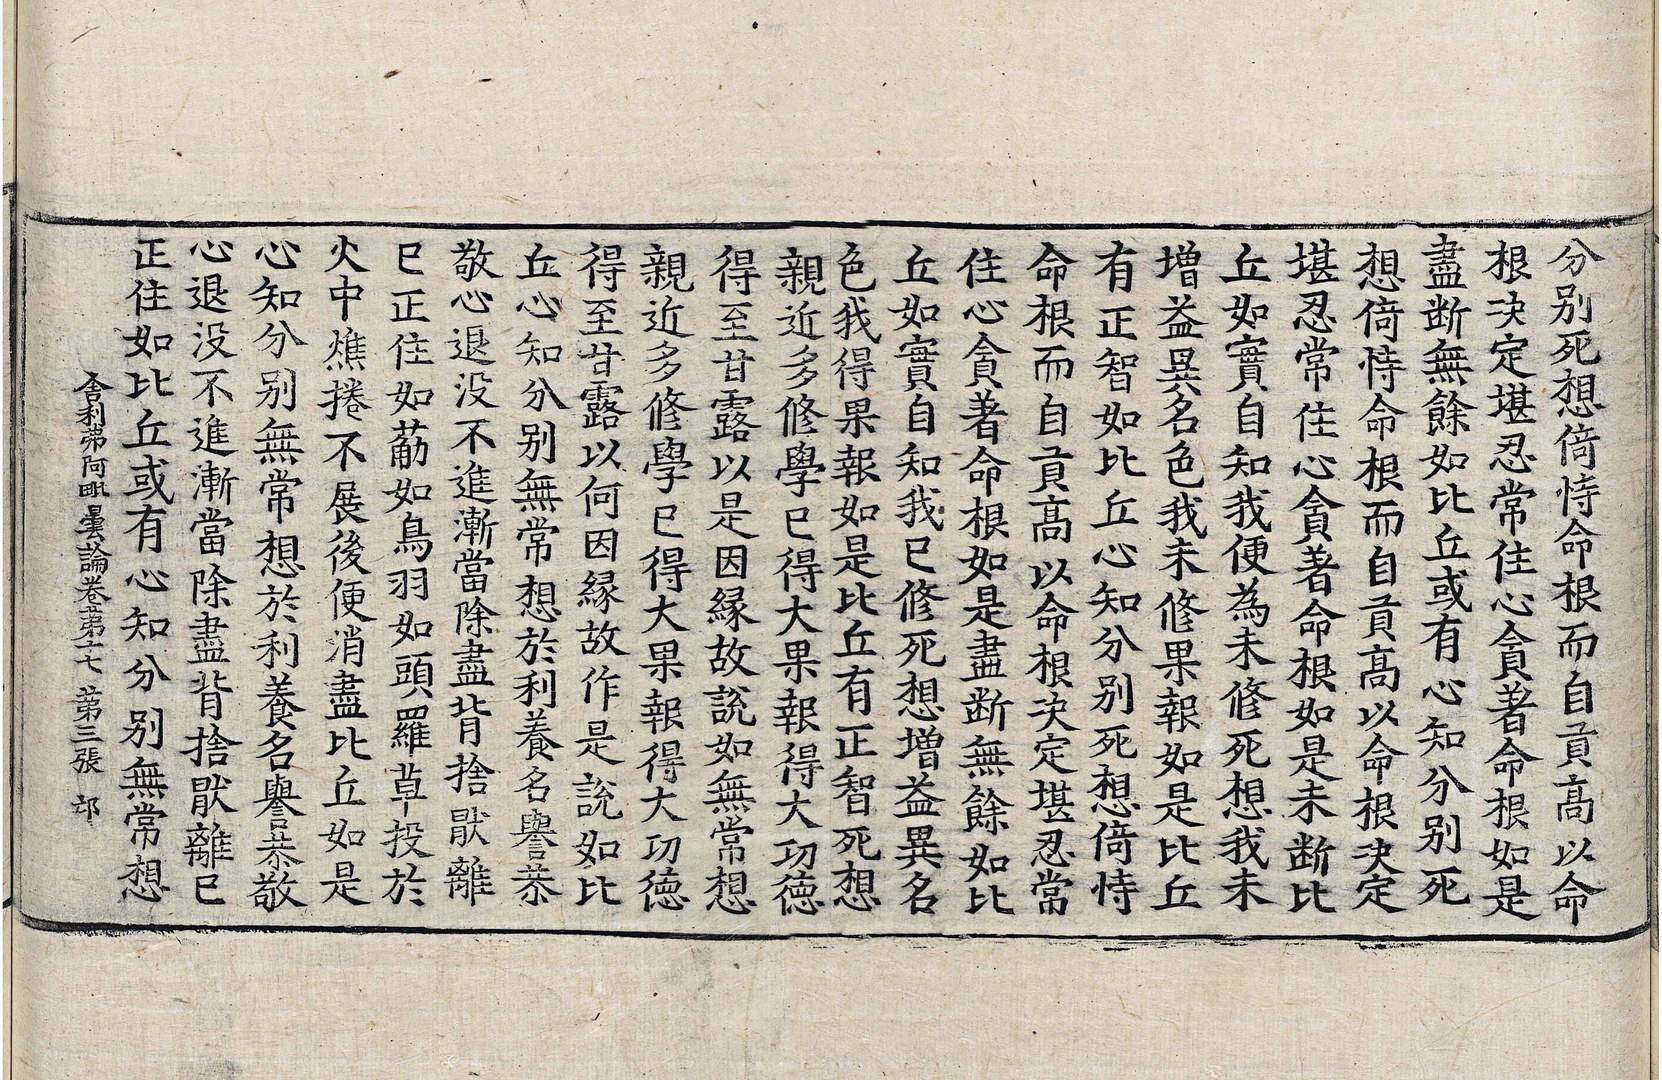 分別死想倚恃命根而自貢高以命
根決定堪忍常住心貪著命根如是
盡断無餘如比丘或有心知分別死
想倚恃命根而自貢高以命根決定
堪忍常住心貪著命根如是未断比
丘如實自知我便為未修死想我未
增益異名色我未修果報如是比丘
有正智如比丘心知分別死想倚恃
命根而自貢高以命根決定堪忍常
住心貪著命根如是盡断無餘如比
丘如實自知我已修死想增益異名
色我得果報如是比丘有正智死想
親近多修學已得大果報得大功德
得至甘露以是因緣故說如無常想
親近多修學已得大果報得大功德
得至甘露以何因緣故作是說如比
丘心知分別無常想於利養名譽恭
敬心退没不進漸當除盡背捨猒離
已正住如葪如鳥羽如頭羅草投於
火中燋捲不展後便消盡比丘如是
心知分別無常想於利養名譽恭敬
心退没不進漸當除盡背捨猒離已
正住如比丘或有心知分別無常想
舍利弗阿毗曇論卷第十七 第三張